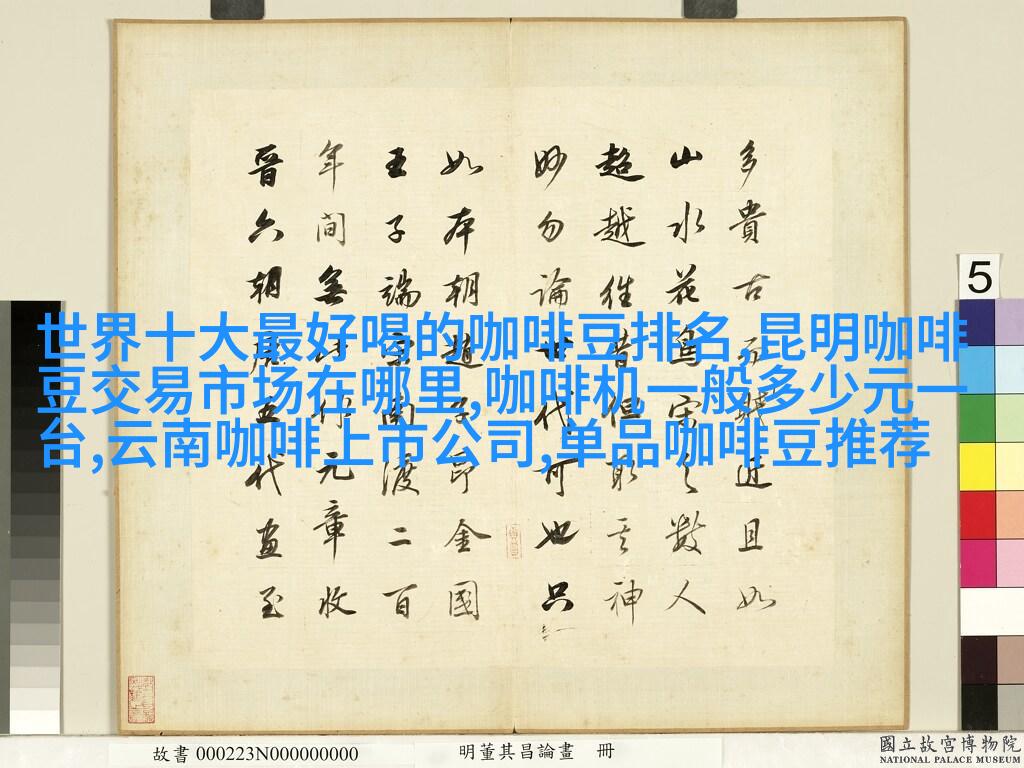 世界十大最好喝的咖啡豆排名,昆明咖啡
豆交易市场在哪里,咖啡机一般多少元一
台,云南咖啡上市公司,单品咖啡豆推荐
多貴古而賤近且如
山水花鳥宋之數人
超越往昔惟取其神
妙勿論世代可也只
如本朝趙子昂金國
王子端宋南渡二百
年間無此作元章收
晉六朝唐五代畫至
5
故書 000223N000000000
明董其昌論畫 冊
國立故宮博物院
NATIONAL PALACE MUSEUM